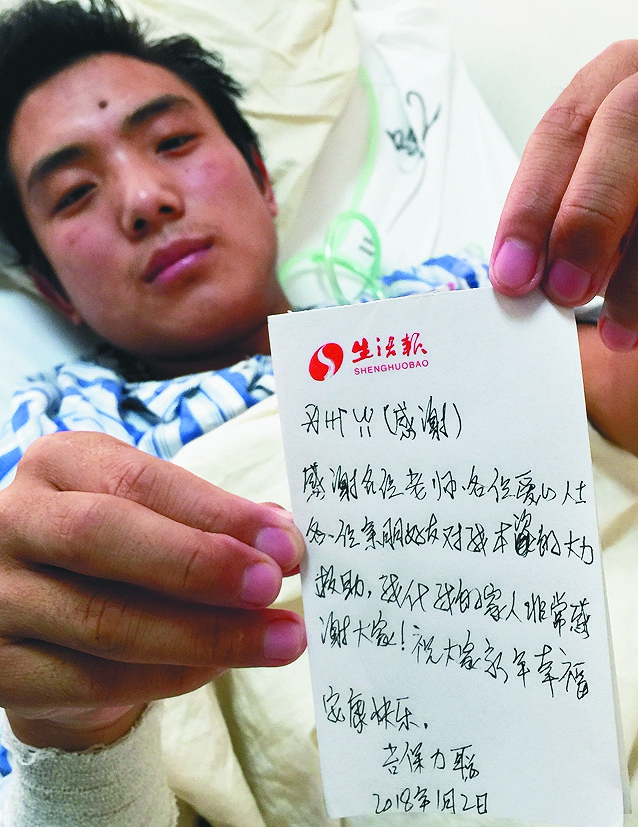 生活报
SHENGHUOBAO
(感谢)
感谢各位老师、各位爱心人士
各位亲朋好友对我本的大力
救助,我代我的家人非常感
谢大家!祝大家新年幸福
安康快乐.
吉保力
2018年1月2日